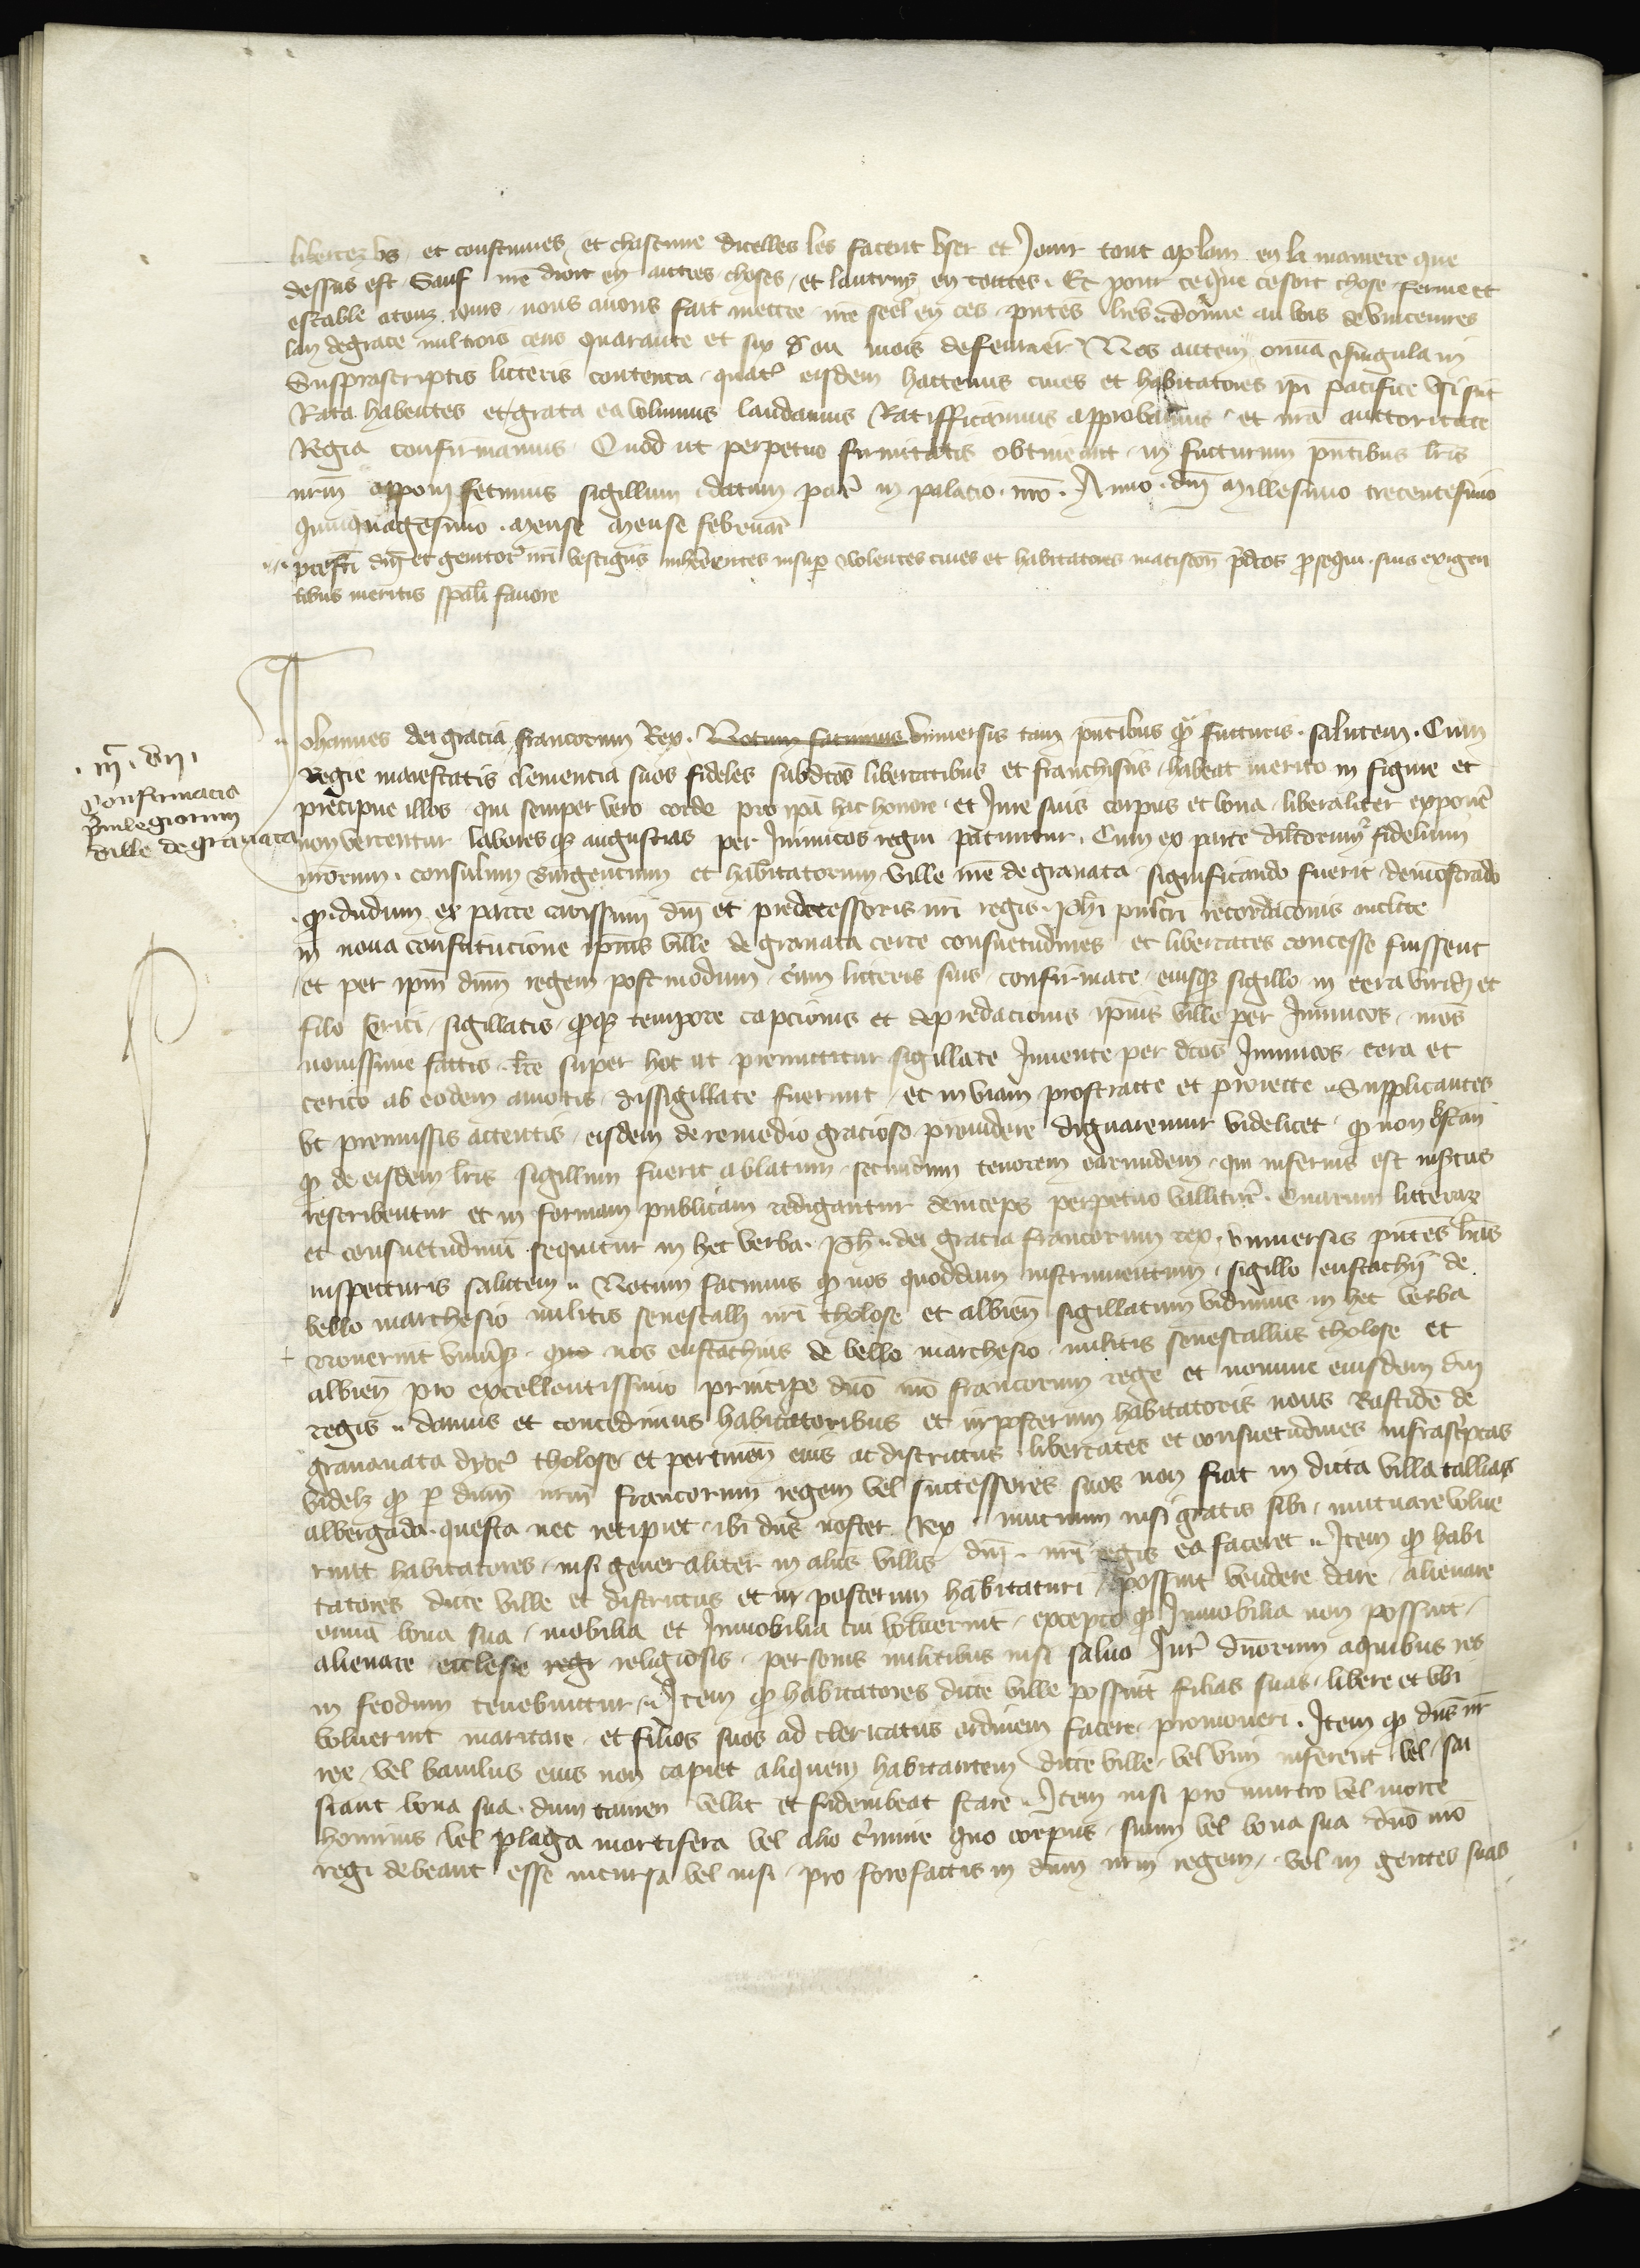 libertez vs et coustumes et chascune dicelles les facent vser et Jouir tout aplain en la maniere que
dessus est Sauf nr̄e droit en autres choses et lautruy en toutes. Et pour ce que ce soit chose ferme et
estable a touz iours nous auons fait mettre nr̄e seel en ces pn̄tes lr̄es Donne au bois de Vincennes
lan de grace mil trois cens quarante et six ou mois de feurier Nos autem om̄ia & singula in
Suprascriptis litteris contenta quat͛ eisdem hactenus ciues et habitatores ip̄i pacifice vsi sūt
Rata habentes et grata ea volumus laudamus Ratifficamus approbamus et nr̄a auctoritate
Regia confirmamus Quod ut perpetue firmitatis obtineant in futurum pn̄tibus lr̄is
nr̄m apponi fecimus sigillum datum par͛ in palacio nr̄o. Anno dn̄i millesimo trecentesimo
quinquagesimo. mense mense februar͛
prefati dn̄i et genitor͛ nr̄i vestigiis inherentes insup̱ volentes ciues et habitatores matiscon̄ p̄dc̄os ꝓsequi suis exigen
tibus meritis sp̄ali fauore
.iiiᶜ. viii.
Confirmacio
p̄uilegiorum
ville de granata
Johannes dei gracia francorum Rex. Notum facimus vniuersis tam pn̄tibus qͣ futuris. salutem. Cum
Regie maiestatis clemencia suos fideles subd̄cos libertatibus et franchisiis habeat merito insignire et
precipue illos qui semper vero corde pro ip̄a hac honore et Jure suis corpus et bona liberaliter expon͛e
non verentur labores qꝫ angustias per Inimicos regni paciuntur. Cum ex parte dilc̄orum & fidelium
nr̄orum. consulum Burgencium et habitatorum ville nr̄e de granata significando fuerit demōstrādo
qꝫ dudum ex parte carissimi dn̄i et predecessoris nr̄i regis. ph̄i pulcri recordac̄onis inclite
in noua constitucione ip̄ius ville de granata certe consuetudines et libertates concesse fuissent
et per ip̄m dn̄m regem postmodum cum litteris suis confirmate eiusqꝫ sigillo in cera viridi et
filo serici sigillatis qꝫ qꝫ tempore capcionis et depredacionis ip̄ius ville per Inimicos nr̄os
nouissime factis lr̄e super hoc ut premittitur sigillate Inuente per dc̄os Inimicos cera et
cerico ab eodem amotis dissigillate fuerunt et in viam prostracte et proiecte Supplicantes
vt premissis attentis eisdem de remedio gracioso prouidere dignaremur videlicet qꝫ non obstan
qꝫ de eisdem lr̄is sigillum fuerit ablatum secundum tenorem earumdem qui inferius est insertus
rescribentur et in formam publicam redigantur deinceps perpetuo vallitur͛. Quarum litterarꝫ
et consuetudinū sequitur in hec verba. ph̄ dei gracia francorum rex vniuersis pn̄tes lr̄as
inspecturis salutem Notum facimus qꝫ nos quoddam instrumentum sigillo eustachij de
bello marchesio militis senescalli nr̄i tholose et albien̄ sigillatum vidimus in hec verba
Nouerint vniuˢi quo nos eustachius de bello marchesio militis senescallus tholose et
albien̄ pro excellentissimo principe dn̄o nr̄o francorum rege et nomine eiusdem dn̄i
regis damus et concedimus habitatoribus et inposterum habitatoris noue Bastide de
grananata dyoc͛ tholose et pertinen̄ eius ac districtus libertates et consuetudines infrascriptas
videlꝫ qꝫ p̱ dn̄m nr̄m francorum regem vel successores suos non fiat in dicta villa tallias
albergada questa nec recipiet ibi dn̄s noster Rex mutuum nisi gratis sibi mutuare volue
rint habitatores nisi generaliter in aliis villis dn̄i. nr̄i regis ea faceret Item qꝫ habi
tatores dicte ville et districtus et in posterum habitaturi possint vendere dare alienare
omnia bona sua mobilia et Inmobilia cui voluerint excepto qꝫ Inmobilia non possint
alienare ecclesie regi religiosis personis militibus nisi saluo Iur͛ dn̄orum a quibus res
in feodum tenebuntur Item qꝫ habitatores dicte ville possint filias suas libere et vbi
voluerint maritare et filios suos ad clericatus ordinem facere promoueri. Item qꝫ dn̄s nr̄
rex vel baiulus eius non capiet aliquem habitantem dicte ville vel vim inferent vel sai
siant bona sua dum tamen vellit et fideiubeat stare Item nisi pro murtro vel morte
hominis vel plaga mortifera vel alio c͛imine quo corpus suum vel bona sua dn̄o nr̄o
regi debeant esse incursa vel nisi pro forofactis in dn̄m nr̄m regem vel in gentes suas